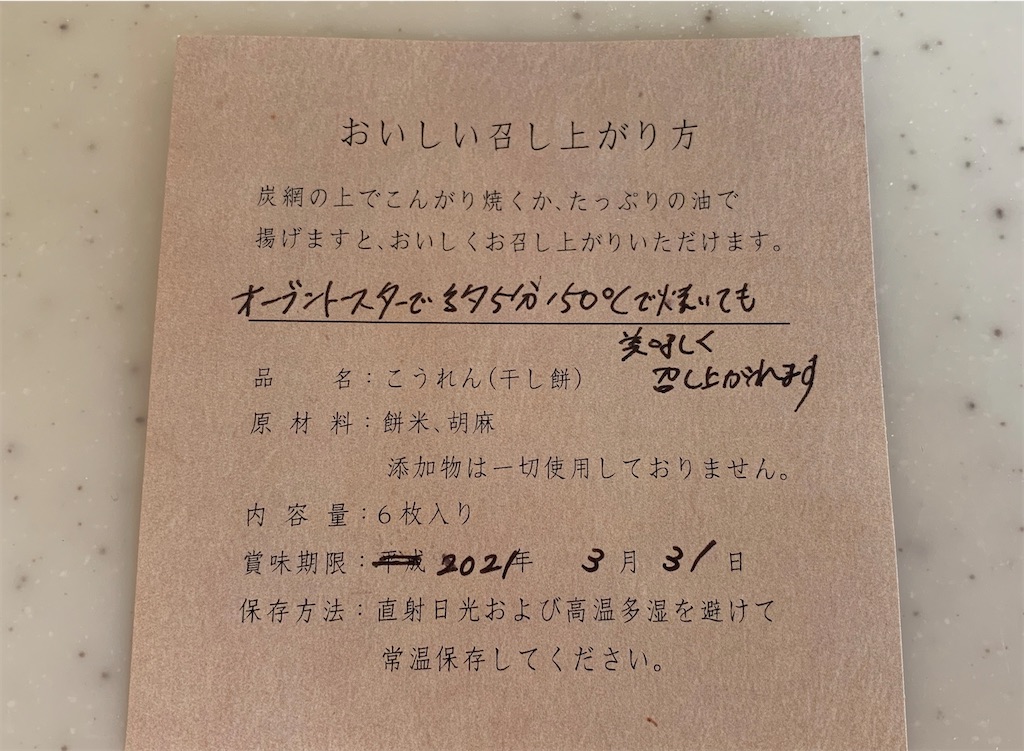 おいしい召し上がり方
炭網の上でこんがり焼くか、たっぷりの油で
揚げますと、おいしくお召し上がりいただけます。
オーブントースターで約5分150℃で焼いても
美味しく
召し上がれます
品 名：こうれん(干し餅)
原材料：餅米、胡麻
添加物は一切使用しておりません。
内容量：6枚入り
賞味期限：平成 2021年 3月 31日
保存方法：直射日光および高温多湿を避けて
常温保存してください。